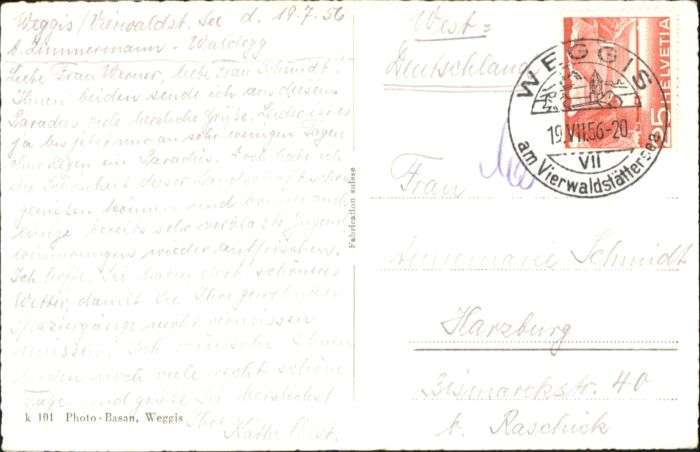 Weggis/Vierwaldst. See d. 19.7.56
b. Zimmermann - Waldegg
Liebe Frau Werner, liebe Frau Schmidt!
Ihnen beiden sende ich aus diesem
Paradies viele herzliche Grüße. Leider ist es
ja bis jetzt nur an sehr wenigen Tagen
ein Paradies. Doch habe ich
die Schönheit dieses Landes schon
genießen können und konnte auch
einige bereits sehr verblaßte Jugend-
erinnerungen wieder auffrischen.
Ich hoffe, Sie haben dort schönes
Wetter, damit Sie Ihre gewohnten
Spaziergänge nicht vermissen
müssen! Ich wünsche Ihnen
beiden noch viele recht schöne
Tage und grüße Sie herzlichst
Ihre
Käthe
k 101 Photo-Basan, Weggis
Fabrication suisse
West=
Deutschland
HELVETIA
5
WEGGIS
19.VII.56-20
VII
am Vierwaldstättersee
Frau
Annemarie Schmidt
Harzburg
Bismarckstr. 40
b. Raschick